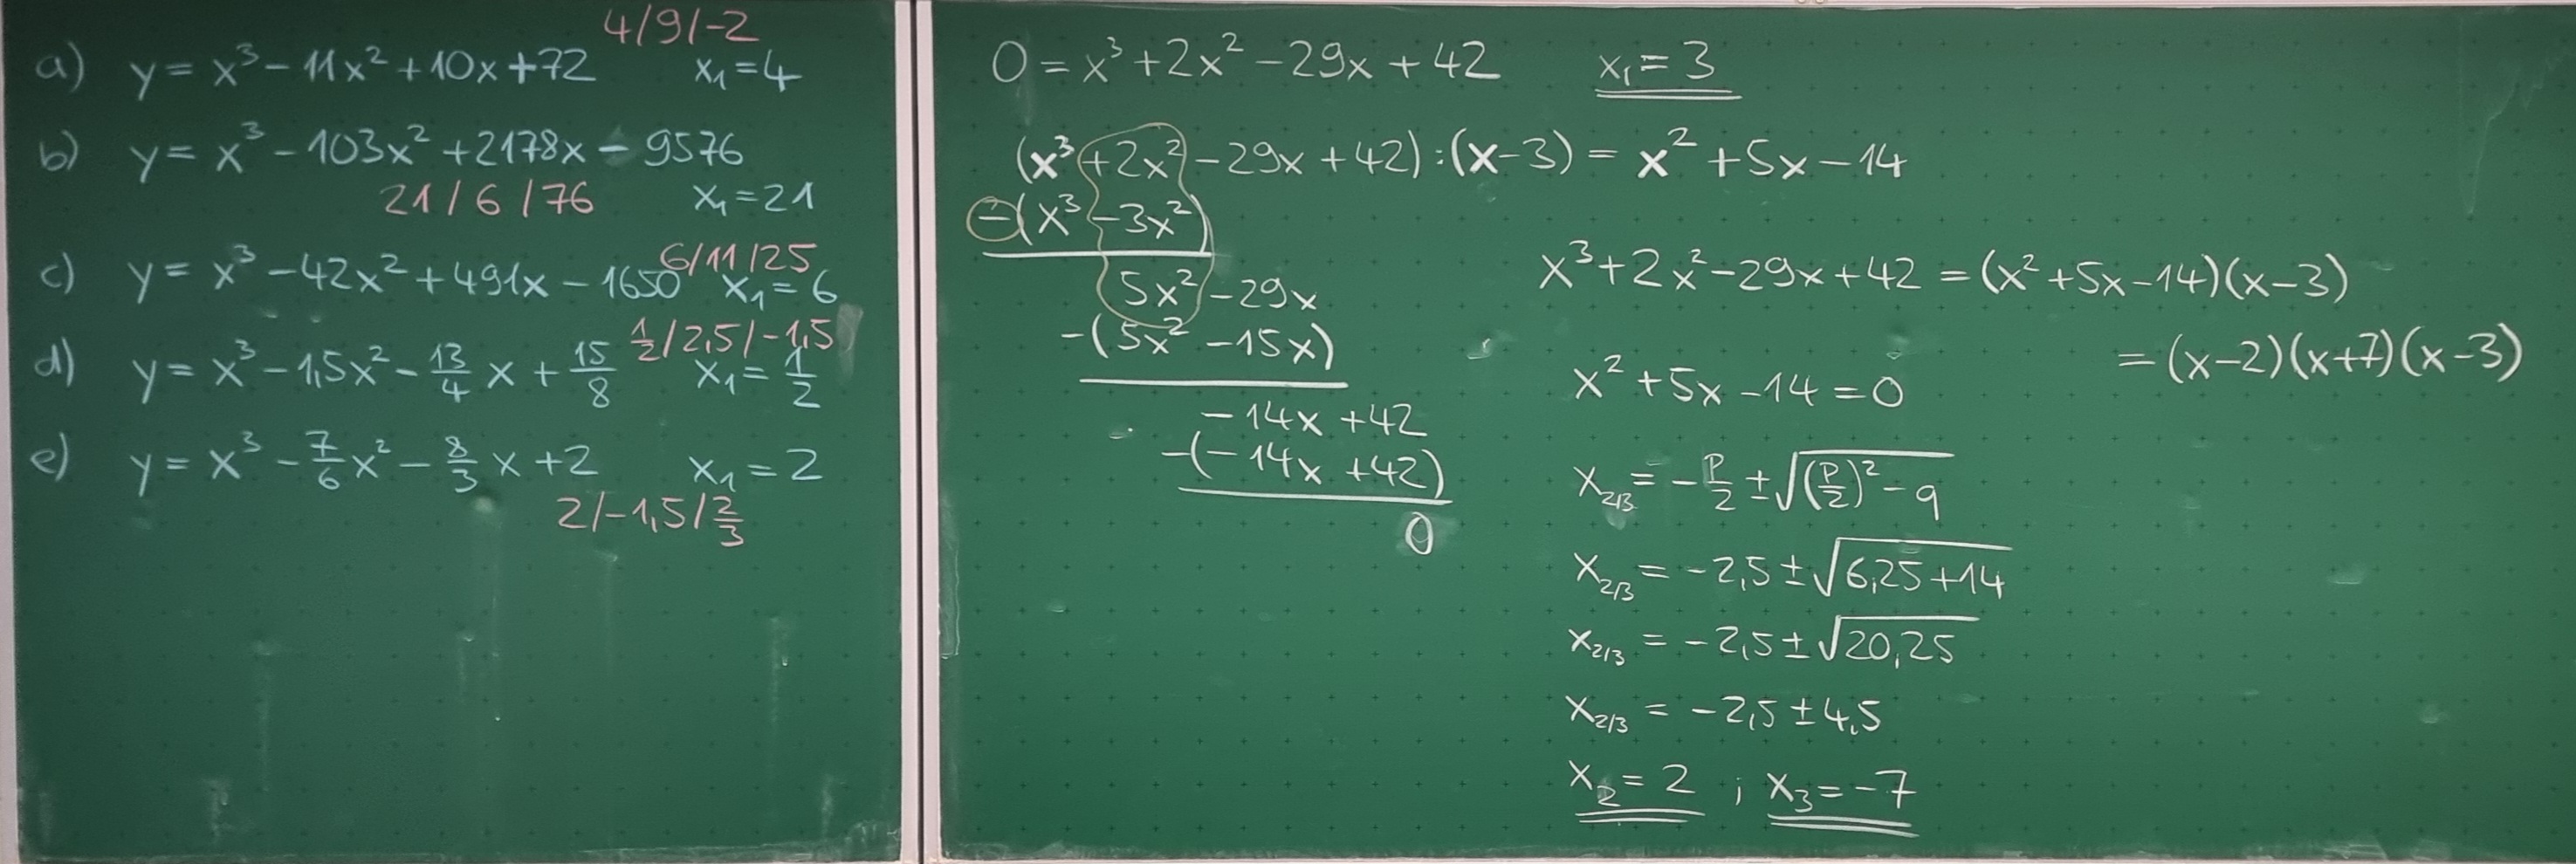 4/9/-2
a) y = x³ - 11x² + 10x + 72 x₁ = 4
b) y = x³ - 103x² + 2178x - 9576
21/6/76 x₁ = 21
6/11/25
c) y = x³ - 42x² + 491x - 1650 x₁ = 6
1/2 / 2,5 / -1,5
d) y = x³ - 1,5x² - 13/4 x + 15/8 x₁ = 1/2
e) y = x³ - 7/6 x² - 8/3 x + 2 x₁ = 2
2/-1,5/ 2/3
0 = x³ + 2x² - 29x + 42 x₁ = 3
(x³ + 2x² - 29x + 42) : (x - 3) = x² + 5x - 14
-(x³ - 3x²)
5x² - 29x
-(5x² - 15x)
-14x + 42
-(-14x + 42)
0
x³ + 2x² - 29x + 42 = (x² + 5x - 14)(x - 3)
= (x - 2)(x + 7)(x - 3)
x² + 5x - 14 = 0
x₂/₃ = -p/2 ± √((p/2)² - q)
x₂/₃ = -2,5 ± √(6,25 + 14)
x₂/₃ = -2,5 ± √20,25
x₂/₃ = -2,5 ± 4,5
x₂ = 2 ; x₃ = -7